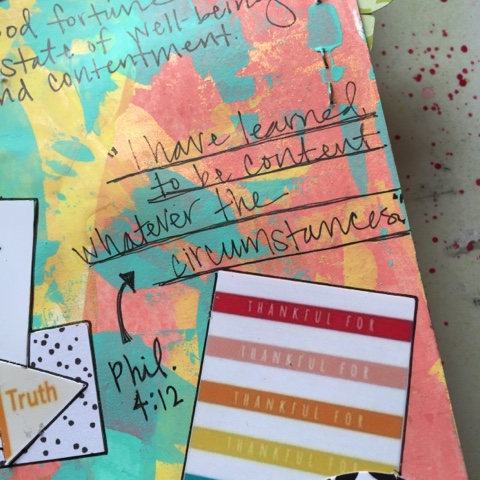 good fortune
state of well-being
and contentment.
"I have learned,
to be content
whatever the
circumstances."
Phil.
4:12
Truth
THANKFUL FOR
THANKFUL FOR
THANKFUL FOR
THANKFUL FOR